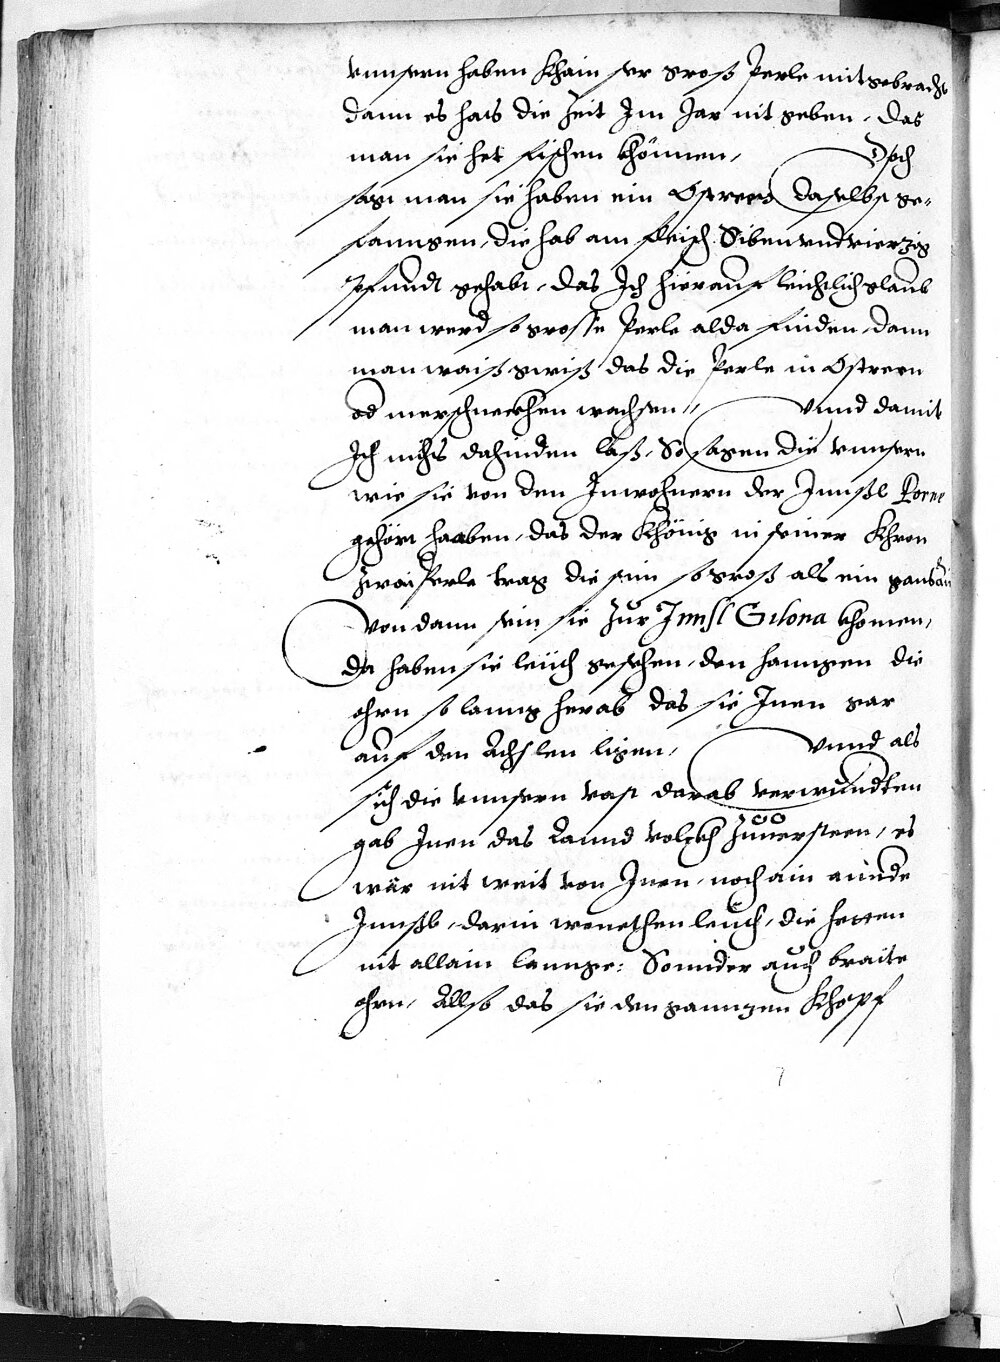 vnnsern haben khain ser gross Perle mitgebracht
dann es hats die Zeit Im Jar nit geben, das
man sie het fischen khönnen, Doch
sagt man sie haben ein Ostreen daselbst ge-
fanngen, die hab am fleisch Sibenvndvierzig
Pfundt gehabt, das Ich hierauf leichtlich glaub
man werd so grosse Perle alda finden, dann
man waiß gwiß das die Perle in Ostreen
od merschneckhen wachsen, vnnd damit
Ich nichts dahinden laß, So sagen die vnnsern
wie sie von den Inwohnern der Innsel Porne
gehört haaben, das der Khönig in seiner Khron
Zwai Perle trag die sein so groß als ein gannsai
Von dann sein sie Zur Innsl Gilona khomen,
da haben sie leüth gesehen, den hanngen die
ohrn so lanng herab das sie Inen gar
auf den Achslen ligen, vnnd als
sich die vnnsern vast darab verwundten
gab Inen das Lannd volckh Zuuersteen, es
wär nit weit von Inen, noch ain annde
Innsl, darin wonethen leüth, die hetten
nit allain lannge: Sonnder auch braite
ohrn, Allso das sie den ganntzen Khopf